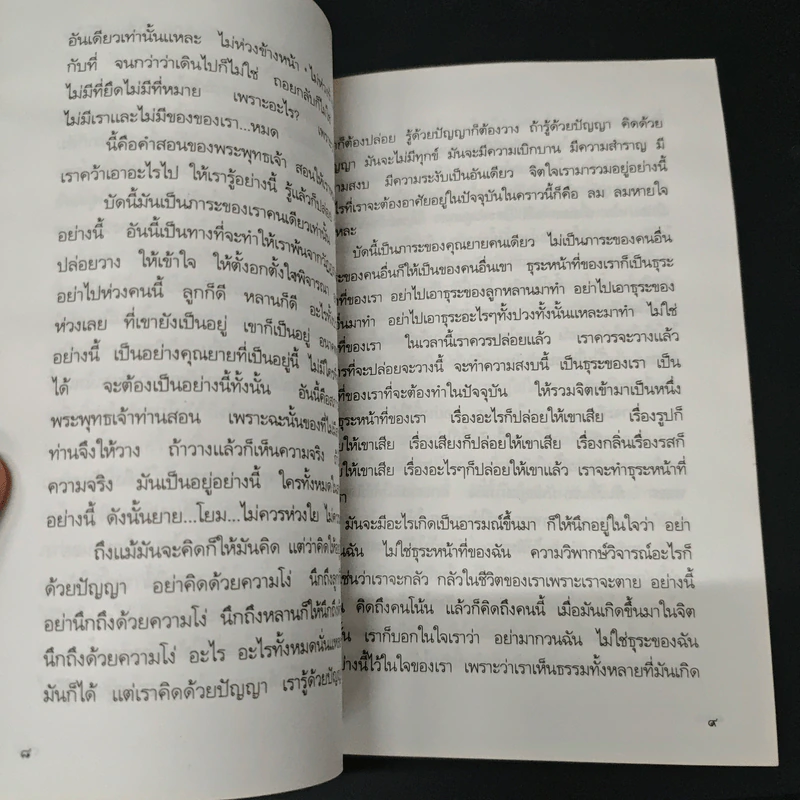 อันเดียวเท่านั้นแหละ ไม่ห่วงข้างหน้า
กับที่ จนกว่าว่าเดินไปก็ไม่ใช่ ถอยกลับก็ไม่ใช่
ไม่มีที่ยึดไม่มีที่หมาย เพราะอะไร?
ไม่มีเราและไม่มีของของเรา...หมด
นี้คือคำสอนของพระพุทธเจ้า สอนให้เรา
เราคว้าเอาอะไรไป ให้เรารู้อย่างนี้ รู้แล้วก็ปล่อย
บัดนี้มันเป็นภาระของเราคนเดียวเท่านั้น
อย่างนี้ อันนี้เป็นทางที่จะทำให้เราพ้นจาก
ปล่อยวาง ให้เข้าใจ ให้ตั้งอกตั้งใจพิจารณา
อย่าไปห่วงคนนี้ ลูกก็ดี หลานก็ดี อะไรทั้ง
ห่วงเลย ที่เขายังเป็นอยู่ เขาก็เป็นอยู่
อย่างนี้ เป็นอย่างคุณยายที่เป็นอยู่นี้ ไม่มี
ได้ จะต้องเป็นอย่างนี้ทั้งนั้น อันนี้คือ
พระพุทธเจ้าท่านสอน เพราะฉะนั้นของที่
ท่านจึงให้วาง ถ้าวางแล้วก็เห็นความจริง
ความจริง มันเป็นอยู่อย่างนี้ ใครทั้งหมด
อย่างนี้ ดังนั้นยาย...โยม...ไม่ควรห่วงใย
ถึงแม้มันจะคิดก็ให้มันคิด แต่ว่าคิดให้
ด้วยปัญญา อย่าคิดด้วยความโง่ นึกถึงลูก
อย่านึกถึงด้วยความโง่ นึกถึงหลานก็ให้นึกถึง
นึกถึงด้วยความโง่ อะไร อะไรทั้งหมดนั่นแหละ
มันก็ได้ แต่เราคิดด้วยปัญญา เรารู้ด้วยปัญญา
๘
ก็ต้องปล่อย รู้ด้วยปัญญาก็ต้องวาง ถ้ารู้ด้วยปัญญา คิดด้วย
มันจะไม่มีทุกข์ มันจะมีความเบิกบาน มีความสำราญ มี
ความสงบ มีความระงับเป็นอันเดียว จิตใจเรามารวมอยู่อย่างนี้
ที่เราจะต้องอาศัยอยู่ในปัจจุบันในคราวนี้ก็คือ ลม ลมหายใจ
บัดนี้เป็นภาระของคุณยายคนเดียว ไม่เป็นภาระของคนอื่น
ของคนอื่นก็ให้เป็นของคนอื่นเขา ธุระหน้าที่ของเราก็เป็นธุระ
ที่ของเรา อย่าไปเอาธุระของลูกหลานมาทำ อย่าไปเอาธุระของ
มาทำ อย่าไปเอาธุระอะไรๆทั้งปวงทั้งนั้นแหละมาทำ ไม่ใช่
ที่ของเรา ในเวลานี้เราควรปล่อยแล้ว เราควรจะวางแล้ว
การที่จะปล่อยจะวางนี้ จะทำความสงบนี้ เป็นธุระของเรา เป็น
ของเราที่จะต้องทำในปัจจุบัน ให้รวมจิตเข้ามาเป็นหนึ่ง
ธุระหน้าที่ของเรา เรื่องอะไรก็ปล่อยให้เขาเสีย เรื่องรูปก็
ให้เขาเสีย เรื่องเสียงก็ปล่อยให้เขาเสีย เรื่องกลิ่นเรื่องรสก็
ให้เขาเสีย เรื่องอะไรๆก็ปล่อยให้เขาแล้ว เราจะทำธุระหน้าที่
มันจะมีอะไรเกิดเป็นอารมณ์ขึ้นมา ก็ให้นึกอยู่ในใจว่า อย่า
ฉัน ไม่ใช่ธุระหน้าที่ของฉัน ความวิพากษ์วิจารณ์อะไรก็
เช่นว่าเราจะกลัว กลัวในชีวิตของเราเพราะเราจะตาย อย่างนี้
คิดถึงคนโน้น แล้วก็คิดถึงคนนี้ เมื่อมันเกิดขึ้นมาในจิต
เราก็บอกในใจเราว่า อย่ามากวนฉัน ไม่ใช่ธุระของฉัน
อย่างนี้ไว้ในใจของเรา เพราะว่าเราเห็นธรรมทั้งหลายที่มันเกิด
๙